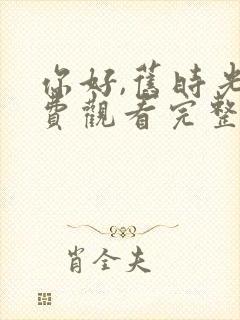 你好,舊時光
費觀看完整
肖全夫